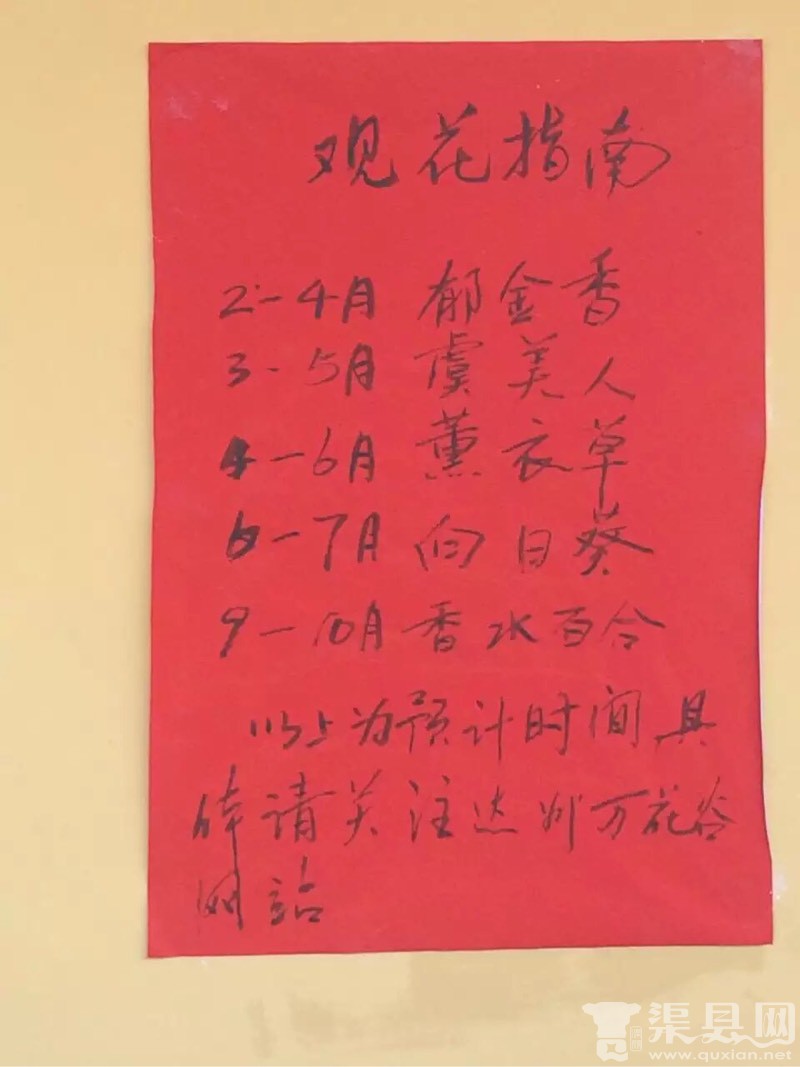 观花指南
2-4月 郁金香
3-5月 虞美人
4-6月 薰衣草
6-7月 向日葵
9-10月 香水百合
以上为预计时间具
体请关注达州万花谷
网站
渠县网
www.quxian.net